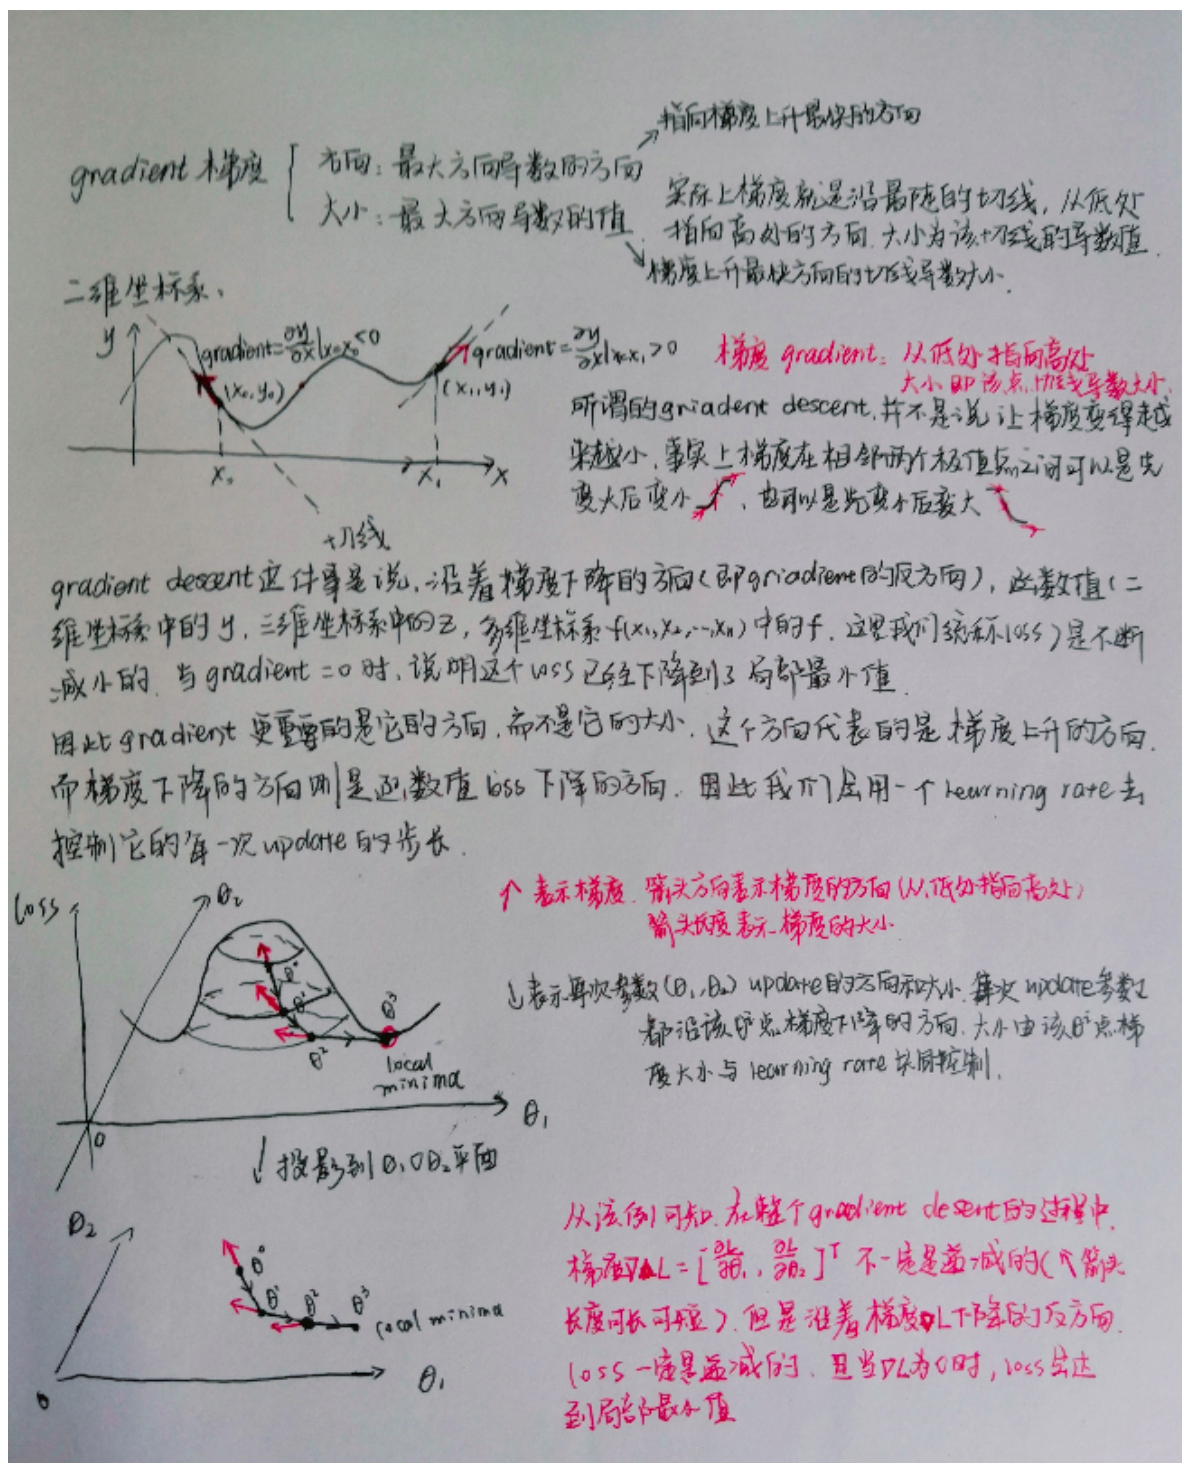 指向梯度上升最快的方向
gradient 梯度
方向：最大方向导数的方向
大小：最大方向导数的值
实际上梯度就是沿最陡的切线，从低处
指向高处的方向，大小为该切线的导数值.
梯度上升最快方向的切线导数大小.
二维坐标系：
y
gradient=∂y/∂x|x=x₀<0
(x₀,y₀)
gradient=∂y/∂x|x=x₁>0
(x₁,y₁)
x₀
x₁
x
切线
梯度 gradient：从低处指向高处
大小即该点切线导数大小.
所谓的griadent descent,并不是说让梯度变得越
来越小，事实上梯度在相邻两个极值点之间可以是先
变大后变小，也可以是先变小后变大
gradient descent这件事是说，沿着梯度下降的方向(即griadient的反方向)，函数值(二
维坐标系中的y，三维坐标系中的z，多维坐标系f(x₁,x₂,…,xn)中的f，这里我们统称loss)是不断
减小的.当gradient=0时，说明这个loss已经下降到了局部最小值.
因此gradient更重要的是它的方向，而不是它的大小，这个方向代表的是梯度上升的方向.
而梯度下降的方向则是函数值loss下降的方向.因此我们会用一个learning rate去
控制它的每一次update的步长.
↑表示梯度.箭头方向表示梯度的方向(从低处指向高处)
箭头长度表示梯度的大小
loss
θ₂
θ⁰
θ¹
θ²
θ³
local
minima
0
θ₁
↓表示每次参数(θ₁,θ₂) update的方向和大小.每次update参数
都沿该θ点梯度下降的方向，大小由该θ点梯
度大小与learning rate共同控制.
↓投影到θ₁Oθ₂平面
θ₂
θ⁰
θ¹
θ²
θ³
local minima
0
θ₁
从该例可知,在整个gradient desent的过程中,
梯度∇L=[∂L/∂θ₁,∂L/∂θ₂]ᵀ 不一定是递减的(↑箭头
长度可长可短).但是沿着梯度∇L下降的反方向.
loss一定是递减的.且当∇L为0时,loss会达
到局部最小值